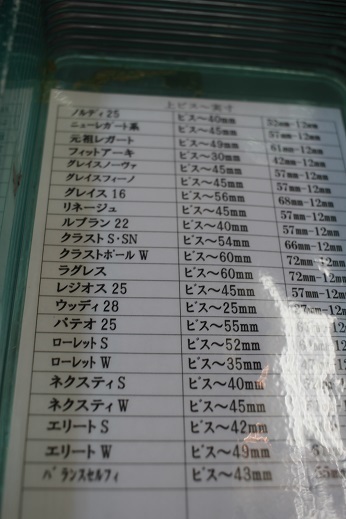 上ビス～実寸
ノルディ25 ビス～40mm 52mm-12mm
ニューレガート系 ビス～45mm 57mm-12mm
元祖レガート ビス～49mm 61mm-12mm
フィットアーキ ビス～30mm 42mm-12mm
グレイスノーヴァ ビス～45mm 57mm-12mm
グレイスフィーノ ビス～45mm 57mm-12mm
グレイス16 ビス～56mm 68mm-12mm
リネージュ ビス～45mm 57mm-12mm
ルブラン22 ビス～40mm 57mm-12mm
クラストS・SN ビス～54mm 66mm-12mm
クラストポールW ビス～60mm 72mm-12mm
ラグレス ビス～60mm 72mm-12mm
レジオス25 ビス～45mm 57mm-12mm
ウッディ28 ビス～25mm -12mm
パテオ25 ビス～55mm -12mm
ローレットS ビス～52mm
ローレットW ビス～35mm
ネクスティS ビス～40mm
ネクスティW ビス～45mm
エリートS ビス～42mm
エリートW ビス～49mm
バランスセルフィ ビス～43mm